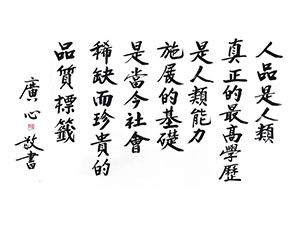 人品是人類
真正的最高學歷
是人類能力
施展的基礎
是當今社會
稀缺而珍貴的
品質標籤
廣心敬書